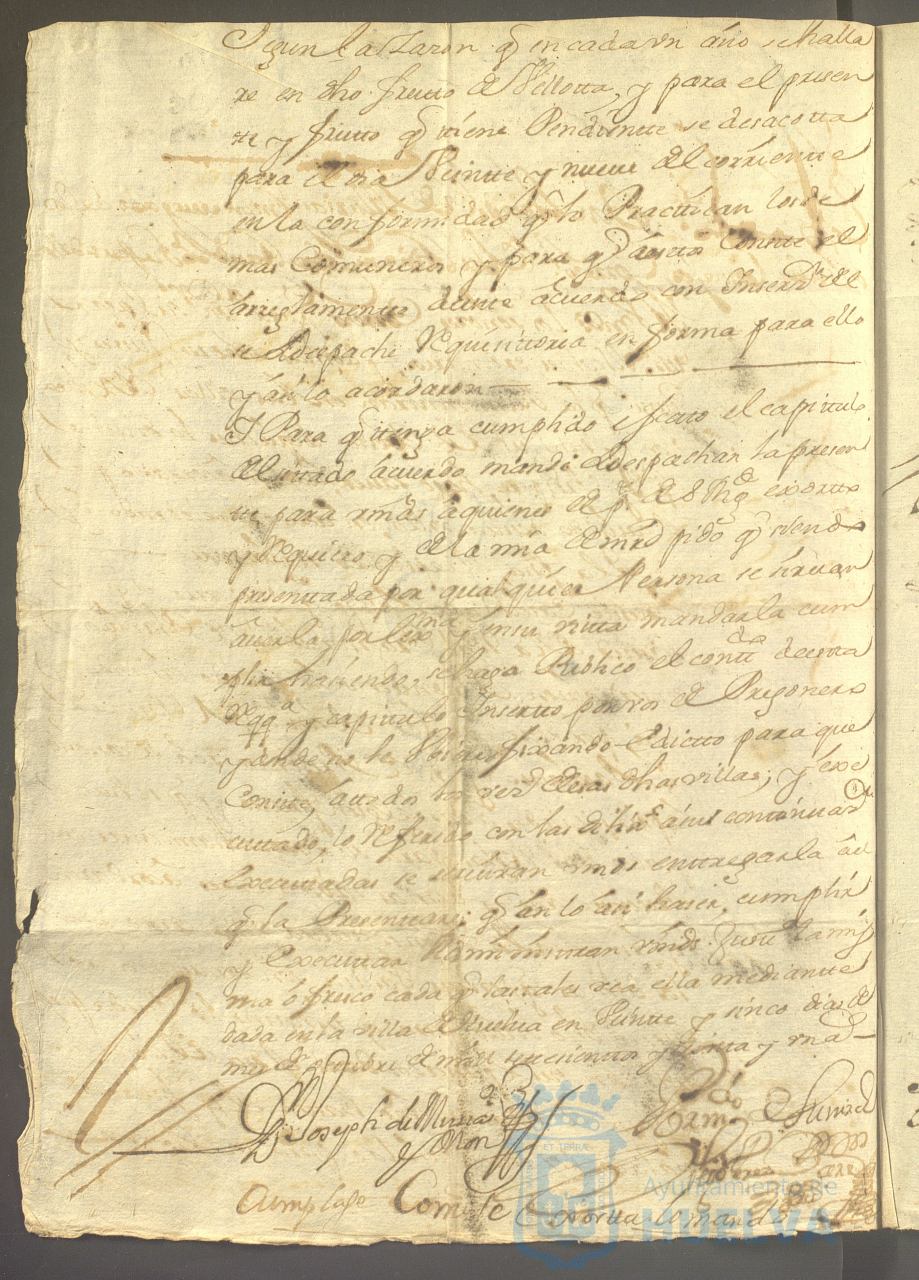 Segun la Razon q̃ en cada vn año se halla
re en dho fruto de Vellotta, y para el presen
te y fruto q̃ tiene Pendiente se desacotta
para el dia Veintte y nueve del corriente
en la conformidad q̃ lo Practtican los de
mas Comuneros y para q̃ a estos Conste el
arreglamento de este acuerdo con Inserz.n del
se despache Requisittoria en forma para ello
y asi lo acordaron
I Para q̃ tenga cumplido efecto el capittulo
del citado acuerdo mandè despachar la presen
te para vmds a quienes de p.te de S Mg.d exortto
y Requiero y de la mia de mrd pido q̃ siendo
presenttada por qualquier Persona se sirvan
auerla por lex.ma y en su vista mandarla cum
plir haciendo se haga Publico el cont.do de esta
Req.a y capitulo Insertto por voz de Pregonero
y donde no le Vbiere fixando Edictto para que
Conste a todos los vez.s de esas dhas villas, y exe
cutado lo referido con las dilix.s a su continuaz.on
Executtadas se serviran vmds enttregarla al
q̃ la Presenttare; q̃ en lo asi hacer, cumplir
y Executtar Administraran vmds Justt.a y la mis
ma ofresco cada q̃ las tales vea ella mediantte
dada en la villa de Huelva en Veintte y sinco dias del
mes de Octubre de mill settesientos y treinta y un a.s
D.n Joseph de
Por su m.d
Cumplase Como se exortta lo mando
ET TERRÆ
Ayuntamiento de
HUELVA